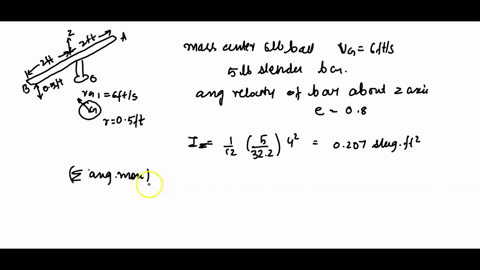 z
2ft
2ft
A
B
0.5ft
O
vG1 = 6ft/s
G
r=0.5ft
mass center 6lb ball VG = 6ft/s
5 lb slender bar.
ang velocity of bar about z axis
e = 0.8
Iz = 1/12 (5/32.2) 4² = 0.207 slug.ft²
(Σ ang.mom)